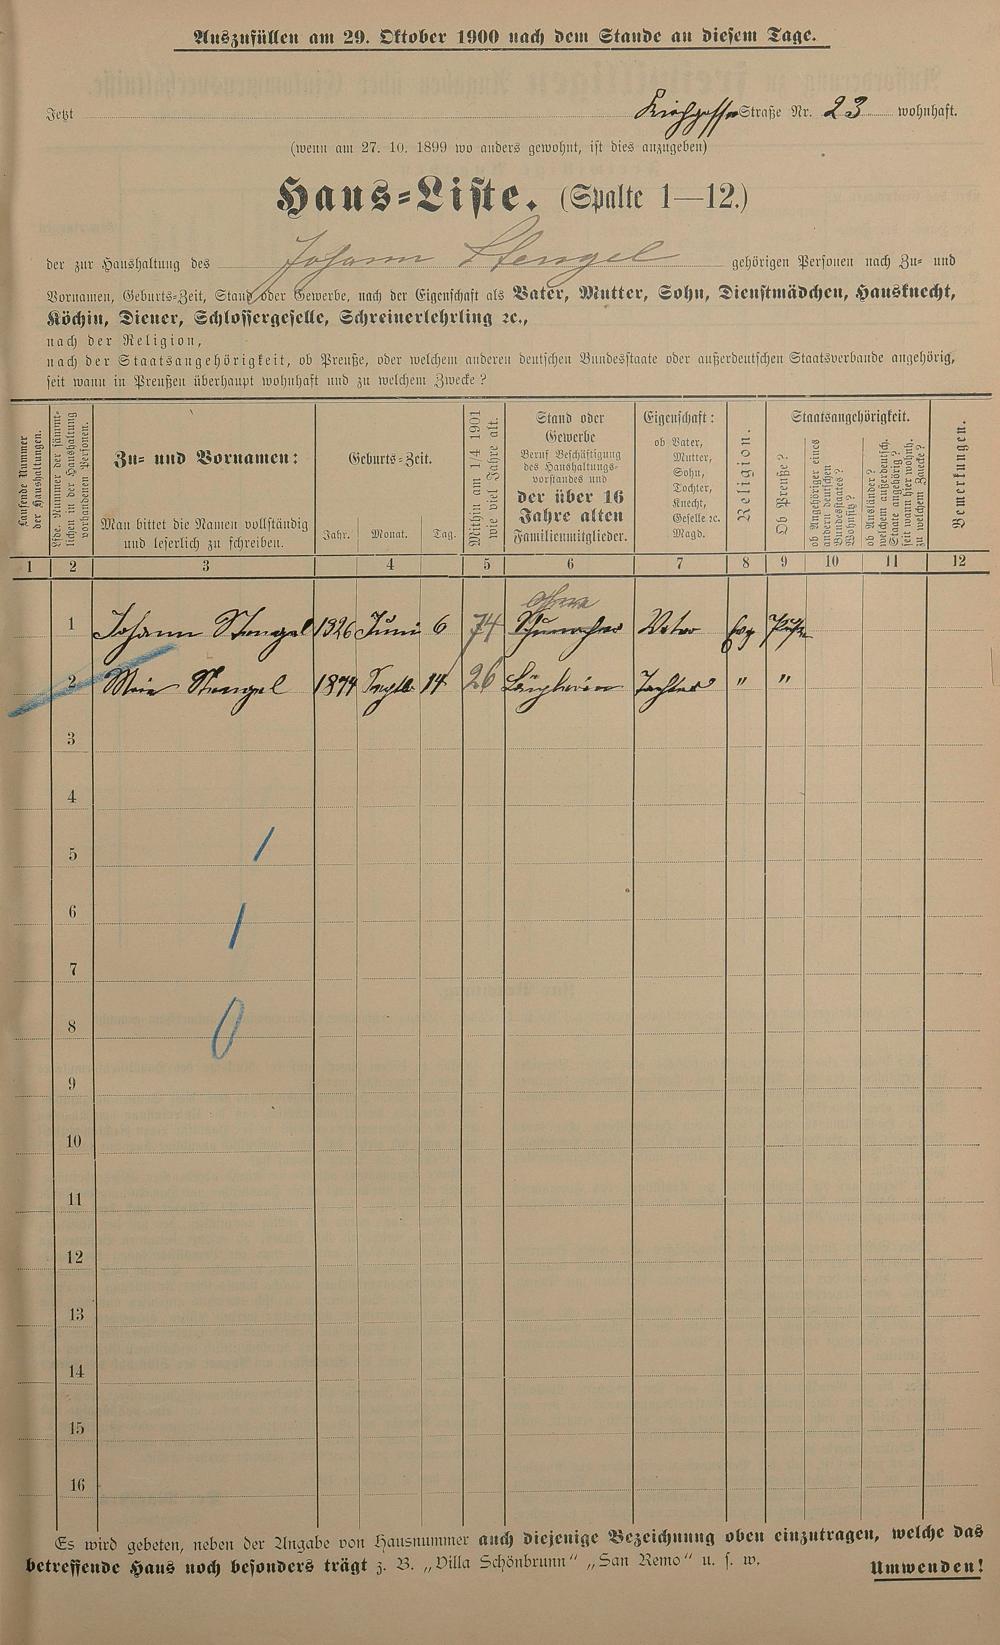 Auszufüllen am 29. Oktober 1900 nach dem Stande an diesem Tage.
Jetzt Kirchgasse Straße Nr. 23 wohnhaft.
(wenn am 27. 10. 1899 wo anders gewohnt, ist dies anzugeben)
Haus-Liste. (Spalte 1—12.)
der zur Haushaltung des Johann Stengel gehörigen Personen nach Zu- und
Vornamen, Geburts-Zeit, Stand oder Gewerbe, nach der Eigenschaft als Vater, Mutter, Sohn, Dienstmädchen, Hausknecht,
Köchin, Diener, Schlossergeselle, Schreinerlehrling ꝛc.,
nach der Religion,
nach der Staatsangehörigkeit, ob Preuße, oder welchem anderen deutschen Bundesstaate oder außerdeutschen Staatsverbande angehörig,
seit wann in Preußen überhaupt wohnhaft und zu welchem Zwecke?
Laufende Nummer
der Haushaltungen.
Lfde. Nummer der sämmt-
lichen in der Haushaltung
vorhandenen Personen.
Zu- und Vornamen:
Man bittet die Namen vollständig
und leserlich zu schreiben.
Geburts-Zeit.
Jahr. Monat. Tag.
Mithin am 1/4 1901
wie viel Jahre alt.
Stand oder
Gewerbe
Beruf Beschäftigung
des Haushaltungs-
vorstandes und
der über 16
Jahre alten
Familienmitglieder.
Eigenschaft:
ob Vater,
Mutter,
Sohn,
Tochter,
Knecht,
Geselle ꝛc.
Magd.
Religion.
Staatsangehörigkeit.
Ob Preuße?
ob Angehöriger eines
andern deutschen
Bundesstaates?
Wohnsitz?
ob Ausländer?
welchem außerdeutsch.
Staate angehörig?
seit wann hier wohnh.
zu welchem Zwecke?
Bemerkungen.
1 2 3 4 5 6 7 8 9 10 11 12
ohne
1 Johann Stengel 1826 Juni 6 74 Schumacher Vater Evg
2 Stengel 1874 Septb 14 26 Tochter " "
3
4
5
6
7
8
9
10
11
12
13
14
15
16
1
1
0
Es wird gebeten, neben der Angabe von Hausnummer auch diejenige Bezeichnung oben einzutragen, welche das
betreffende Haus noch besonders trägt z. B. „Villa Schönbrunn“ „San Remo“ u. s. w.
Umwenden!